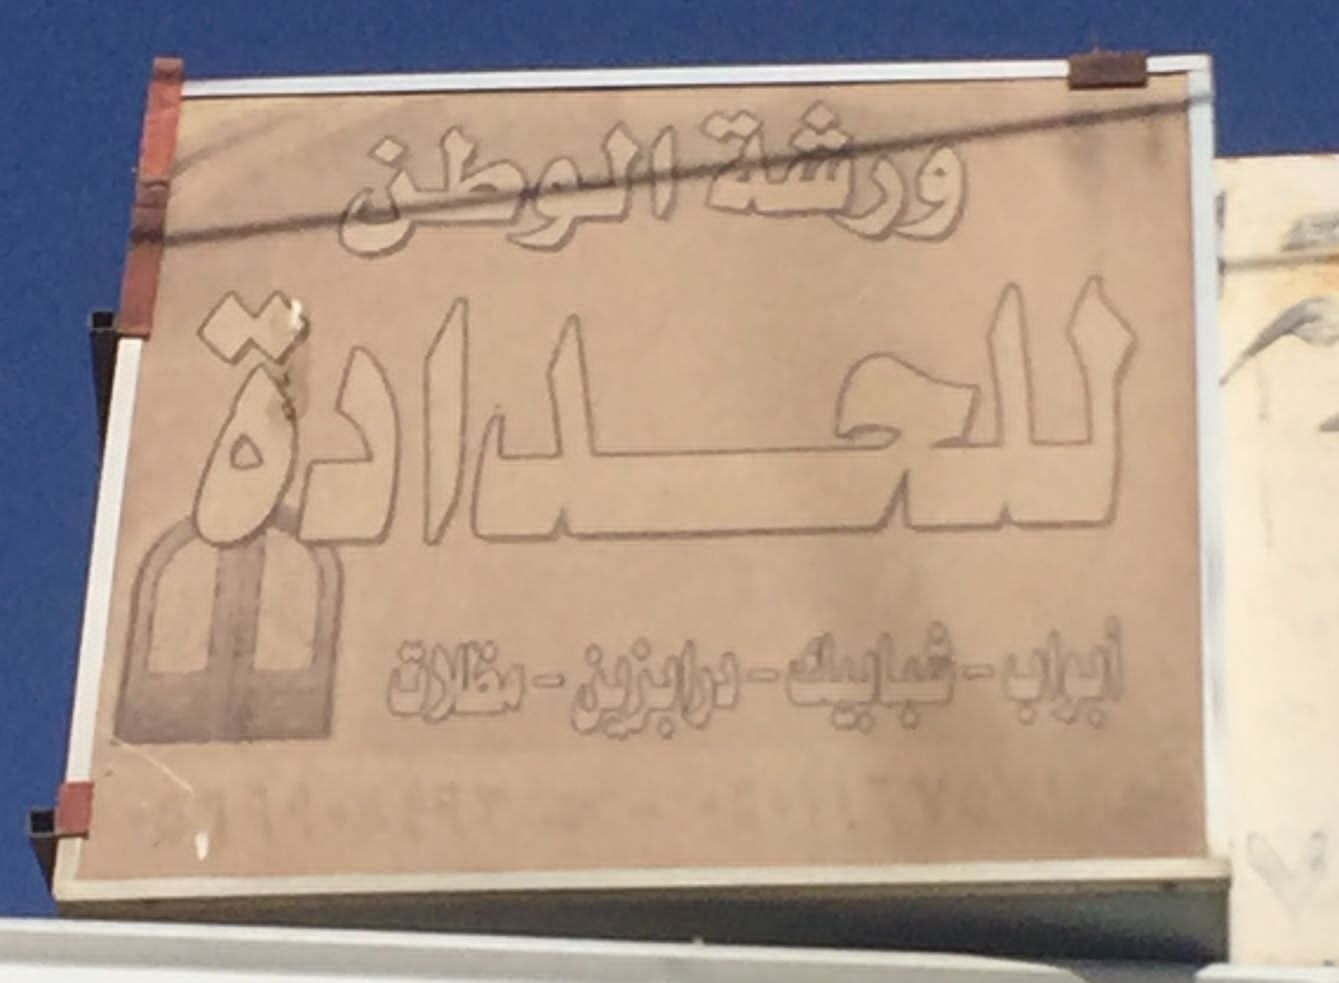 ورشة الوطن
للحدادة
أبواب - شبابيك - درابزين - مظلات